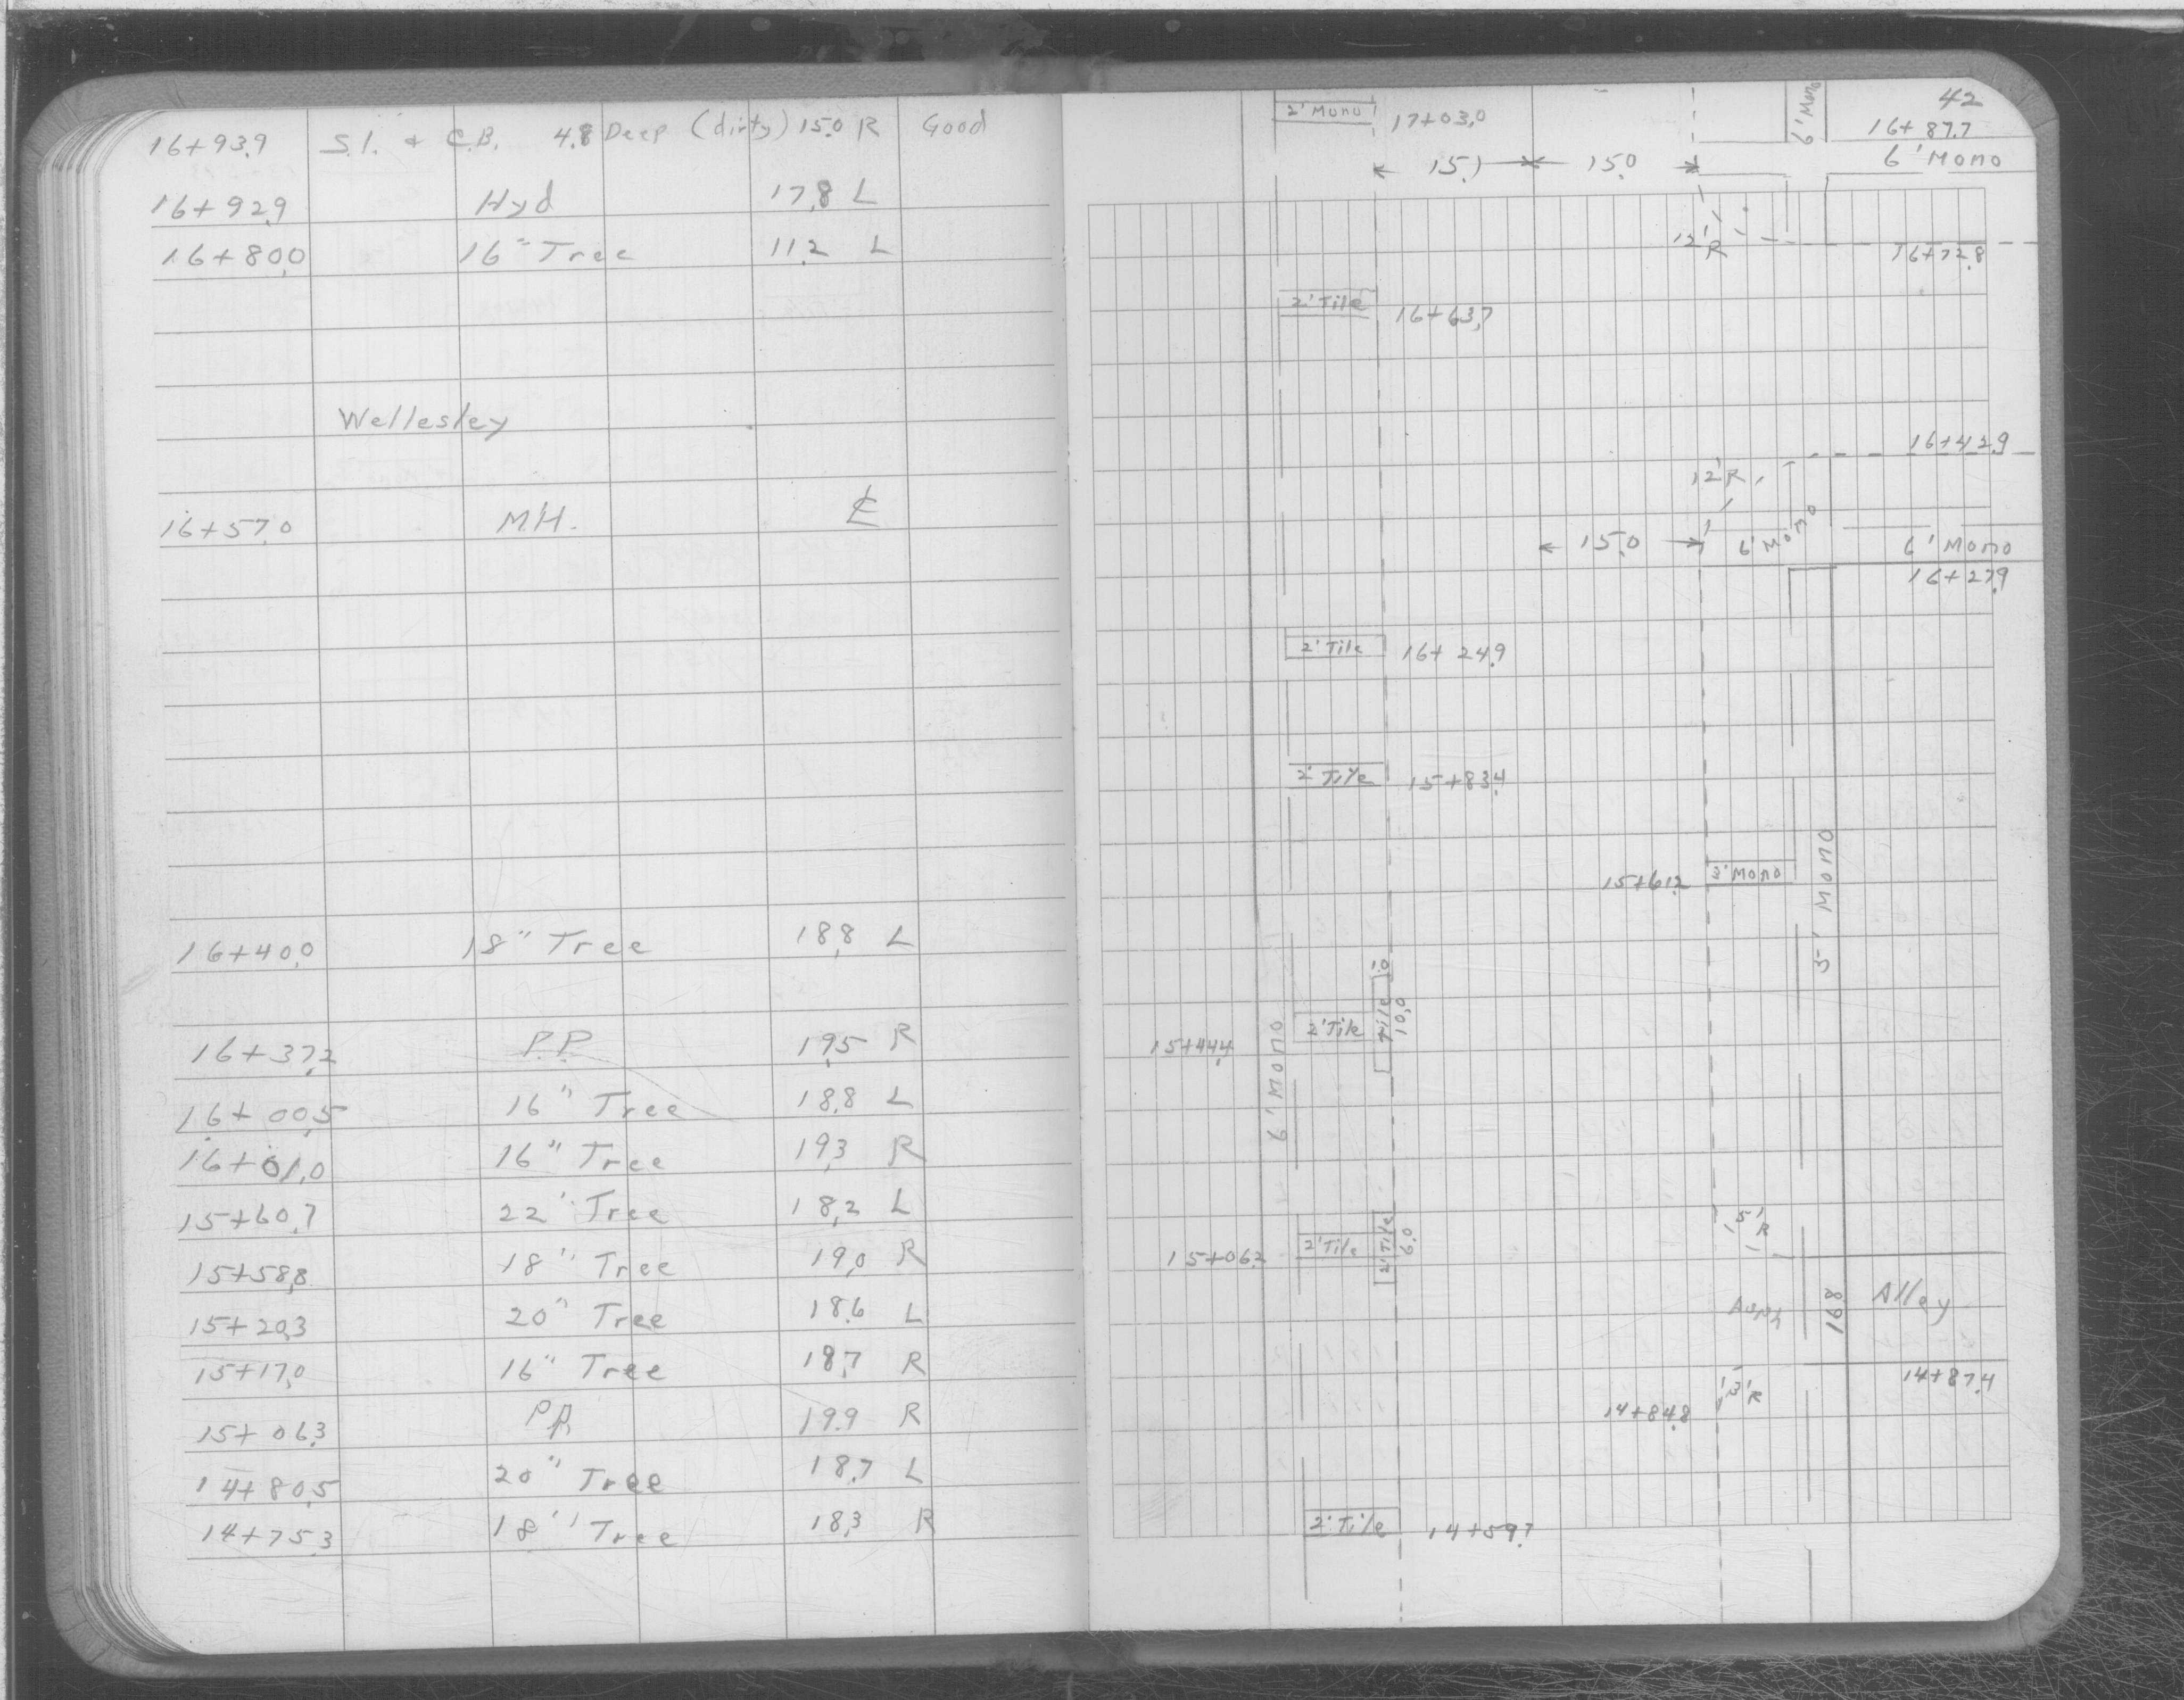 16+93.9 S.I. & C.B. 4.8 Deep (dirty) 15.0 R Good
16+92.9 Hyd 17.8 L
16+80.0 16" Tree 11.2 L
Wellesley
16+57.0 M.H. ℄
16+40.0 18" Tree 18.8 L
16+37.2 P.P. 19.5 R
16+00.5 16" Tree 18.8 L
16+01.0 16" Tree 19.3 R
15+60.7 22" Tree 18.2 L
15+58.8 18" Tree 19.0 R
15+20.3 20" Tree 18.6 L
15+17.0 16" Tree 18.7 R
15+06.3 P.P. 19.9 R
14+80.5 20" Tree 18.7 L
14+75.3 18" Tree 18.3 R
42
2' Mono 17+03.0 6' Mono 16+87.7
15.1 15.0 6' Mono
12' R 16+72.8
2' Tile 16+63.7
16+42.9
12' R
15.0 6' Mono 6' Mono
16+27.9
2' Tile 16+24.9
2' Tile 15+83.4
15+61.2 3' Mono
5' Mono
1.0
15+44.4 2' Tile Tile 10.0
6' Mono
5' R
15+06.2 2' Tile 2' Tile 6.0
Asph 16.8 Alley
14+87.4
14+84.8 3' R
2' Tile 14+59.7